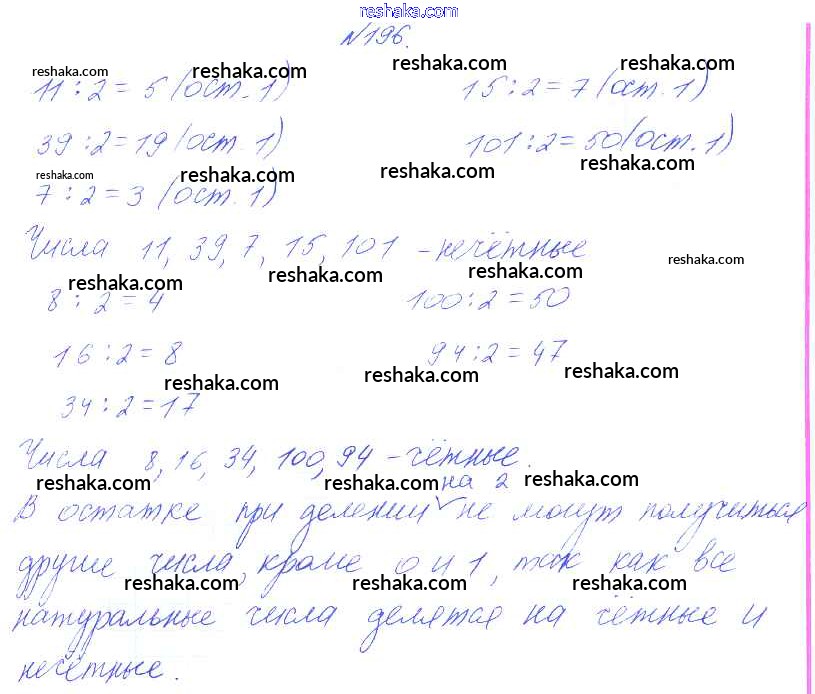 reshaka.com
№196.
reshaka.com reshaka.com reshaka.com reshaka.com
11 : 2 = 5 (ост. 1) 15 : 2 = 7 (ост. 1)
39 : 2 = 19 (ост. 1) 101 : 2 = 50 (ост. 1)
reshaka.com reshaka.com reshaka.com reshaka.com
7 : 2 = 3 (ост. 1)
Числа 11, 39, 7, 15, 101 - нечётные
reshaka.com reshaka.com reshaka.com reshaka.com
8 : 2 = 4 100 : 2 = 50
16 : 2 = 8 94 : 2 = 47
reshaka.com reshaka.com reshaka.com
34 : 2 = 17
Числа 8, 16, 34, 100, 94 - чётные.
reshaka.com reshaka.com reshaka.com
на 2
В остатке при делении не могут получиться
другие числа, кроме 0 и 1, так как все
reshaka.com reshaka.com reshaka.com
натуральные числа делятся на чётные и
нечётные.